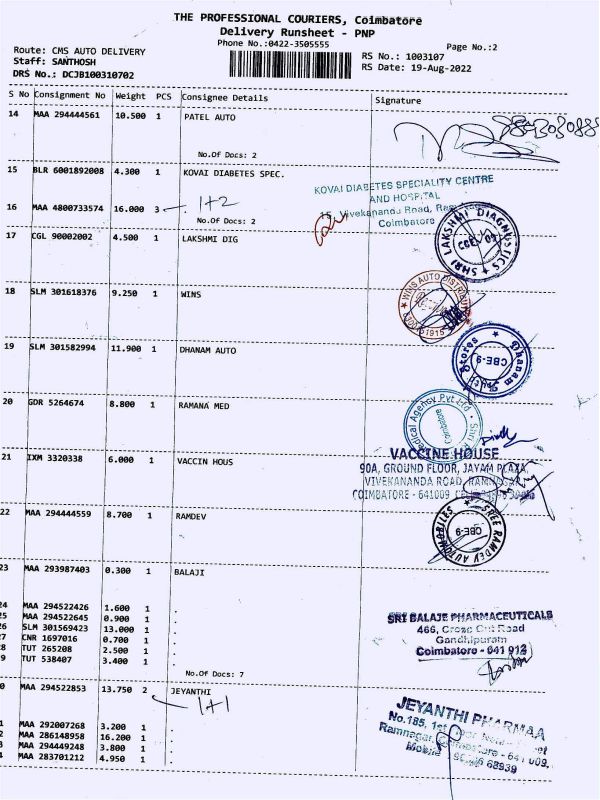 THE PROFESSIONAL COURIERS, Coimbatore
Delivery Runsheet - PNP
Phone No.:0422-3505555
Page No.:2
Route: CMS AUTO DELIVERY
Staff: SANTHOSH
DRS No.: DCJB100310702
RS No.: 1003107
RS Date: 19-Aug-2022
S No Consignment No Weight PCS Consignee Details Signature
14 MAA 294444561 10.500 1 PATEL AUTO
No.Of Docs: 2
15 BLR 6001892008 4.300 1 KOVAI DIABETES SPEC.
KOVAI DIABETES SPECIALITY CENTRE
AND HOSPITAL
16 MAA 4800733574 16.000 3 1+2
15, Vivekananda Road,
Coimbatore
No.Of Docs: 2
17 CGL 90002002 4.500 1 LAKSHMI DIG
SHRI LAKSHMI DIAGNOSTICS
18 SLM 301618376 9.250 1 WINS
WINS AUTO
19 SLM 301582994 11.900 1 DHANAM AUTO
Dhanam Stores
CBE-9
20 GDR 5264674 8.800 1 RAMANA MED
Medical Agency Pvt Ltd
Coimbatore
21 IXM 3320338 6.000 1 VACCIN HOUS
VACCINE HOUSE
90A, GROUND FLOOR, JAYAM PLAZA,
VIVEKANANDA ROAD, RAMNAGAR,
COIMBATORE - 641009
22 MAA 294444559 8.700 1 RAMDEV
SREE RAMDEV AUTOMOBILES
CBE-9
23 MAA 293987403 0.300 1 BALAJI
24 MAA 294522426 1.600 1 .
25 MAA 294522645 0.900 1 .
26 SLM 301569423 13.000 1 .
27 CNR 1697016 0.700 1 .
28 TUT 265208 2.500 1 .
9 TUT 538407 3.400 1 .
SRI BALAJE PHARMACEUTICALS
466, Cross Cut Road
Gandhipuram
Coimbatore - 641 012
No.Of Docs: 7
0 MAA 294522853 13.750 2 JEYANTHI
1+1
1 MAA 292007268 3.200 1 .
2 MAA 286148958 16.200 1 .
3 MAA 294449248 3.800 1 .
4 MAA 283701212 4.950 1 .
JEYANTHI PHARMAA
No.185, 1st
Ramnagar, Coimbatore - 641 009.
Mobile 68939